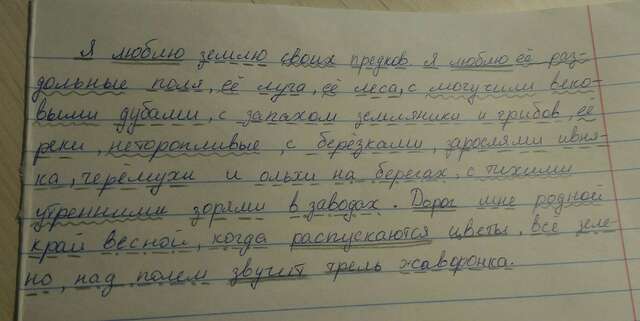 Я люблю землю своих предков. Я люблю её раз-
дольные поля, её луга, её леса, с могучими веко-
выми дубами, с запахом земляники и грибов, её
реки, неторопливые, с берёзками, зарослями ивня-
ка, черёмухи и ольхи на берегах, с тихими
утренними зорями в заводах. Дорог мне родной
край весной, когда распускаются цветы, всё зеле
но, над полем звучит трель жаворонка.